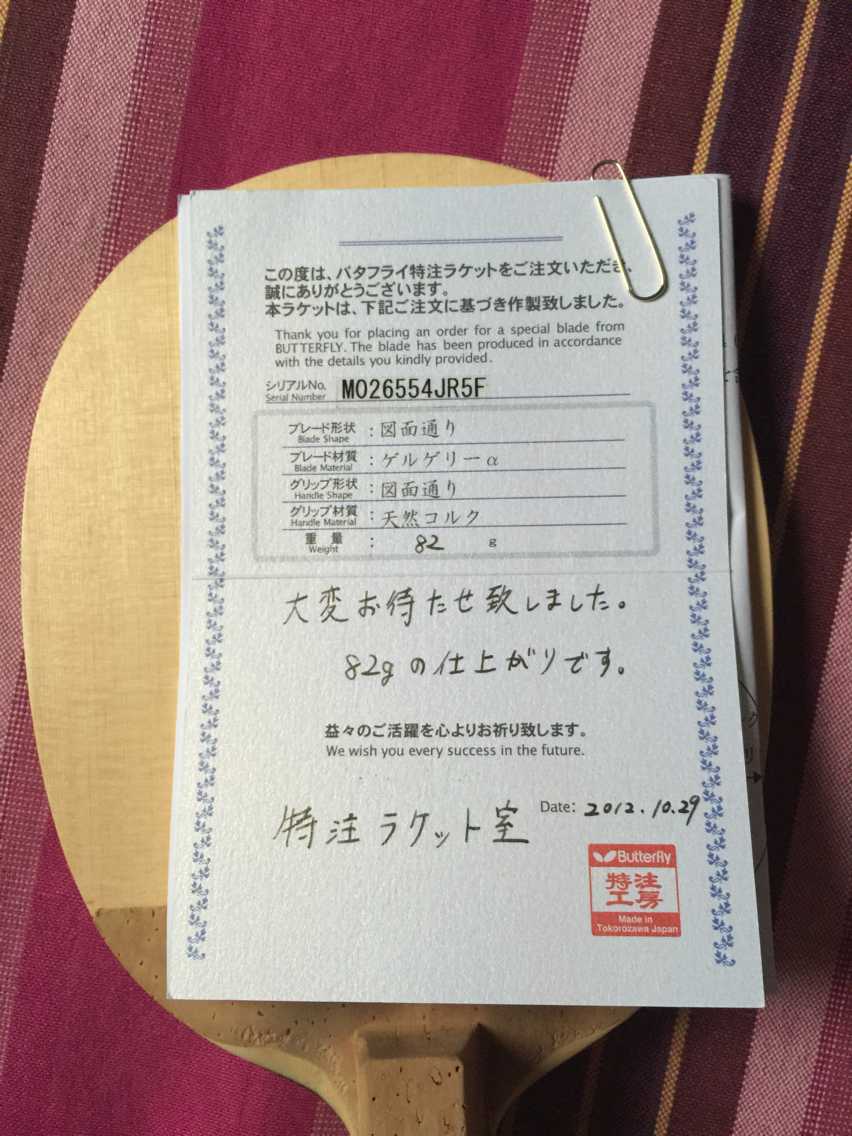 この度は、バタフライ特注ラケットをご注文いただき、
誠にありがとうございます。
本ラケットは、下記ご注文に基づき作製致しました。
Thank you for placing an order for a special blade from
BUTTERFLY. The blade has been produced in accordance
with the details you kindly provided.
シリアルNo. M026554JR5F
Serial Number
ブレード形状 : 図面通り
Blade Shape
ブレード材質 : ゲルゲリーα
Blade Material
グリップ形状 : 図面通り
Handle Shape
グリップ材質 : 天然コルク
Handle Material
重量 : 82 g
Weight
大変お待たせ致しました。
82gの仕上がりです。
益々のご活躍を心よりお祈り致します。
We wish you every success in the future.
Date: 2012.10.29
特注ラケット室
Butterfly
特注
工房
Made in
Tokorozawa Japan